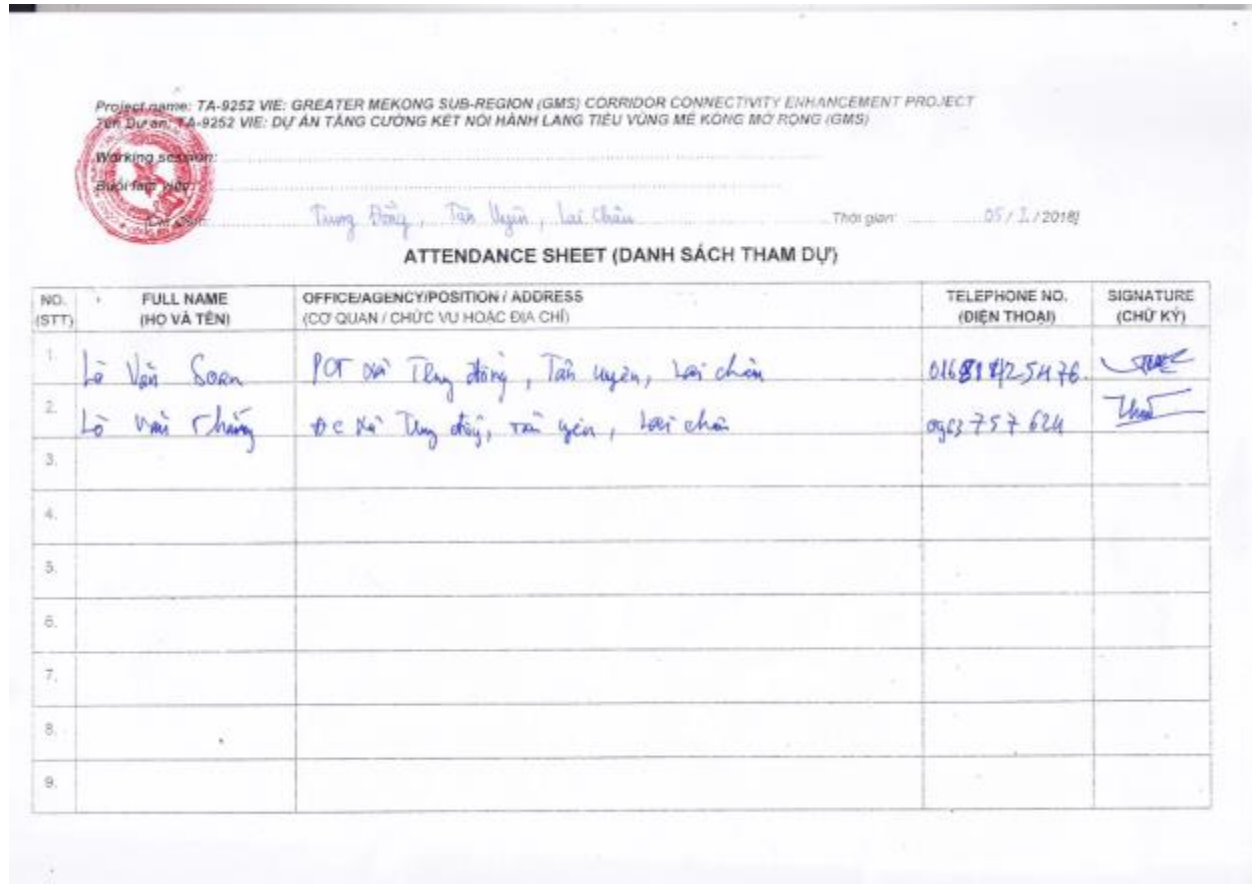 Project name: TA-9252 VIE: GREATER MEKONG SUB-REGION (GMS) CORRIDOR CONNECTIVITY ENHANCEMENT PROJECT
Tên Dự án: TA-9252 VIE: DỰ ÁN TĂNG CƯỜNG KẾT NỐI HÀNH LANG TIỂU VÙNG MÊ KÔNG MỞ RỘNG (GMS)
Working session:
Buổi làm việc:
Trung Đồng, Tân Uyên, Lai Châu Thời gian: 05/1/2018]
ATTENDANCE SHEET (DANH SÁCH THAM DỰ)
NO. FULL NAME OFFICE/AGENCY/POSITION / ADDRESS TELEPHONE NO. SIGNATURE
(STT) (HỌ VÀ TÊN) (CƠ QUAN / CHỨC VỤ HOẶC ĐỊA CHỈ) (ĐIỆN THOẠI) (CHỮ KÝ)
1. Lò Văn Soan PCT xã Tung đồng, Tân uyên, Lai châu
2. Lò Văn ĐC xã Tung đồng, Tân uyên, Lai châu 0963 757 624
3.
4.
5.
6.
7.
8.
9.